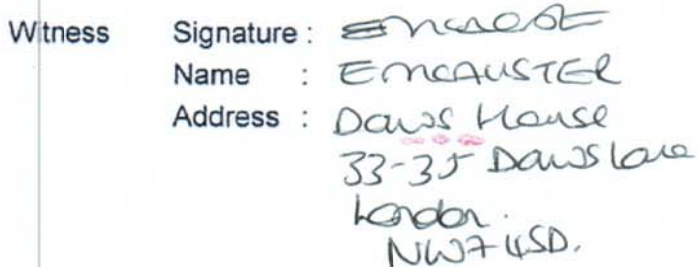 Witness Signature :
Name : EMCAUSTER
Address : Daws House
33-35 Daws Lane
London.
NW7 4SD.